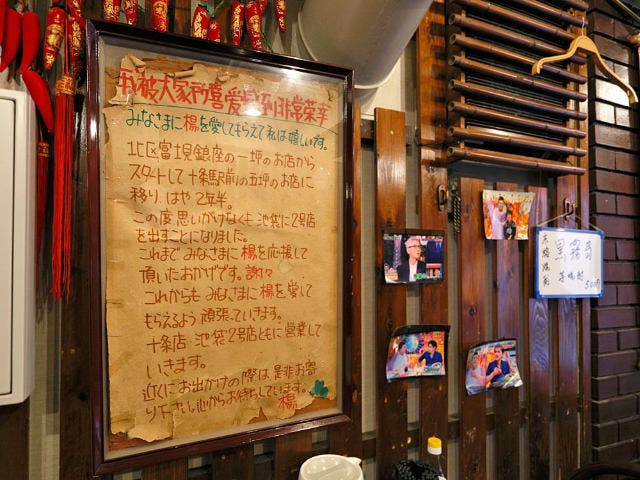 我被大家所喜爱感到非常荣幸
みなさまに楊を愛してもらえて私は嬉しいです。
北区富士見銀座の一坪のお店から
スタートして十条駅前の五坪のお店に
移り、はや2年半。
この度思いがけなくも池袋に2号店
を出すことになりました。
これまでみなさまに楊を応援して
頂いたおかげです。謝々
これからもみなさまに楊を愛して
もらえるよう頑張っていきます。
十条店・池袋2号店ともに営業して
いきます。
近くにお出かけの際は是非お寄
り下さい。心からお待ちしています。
楊
黒霧島
500円